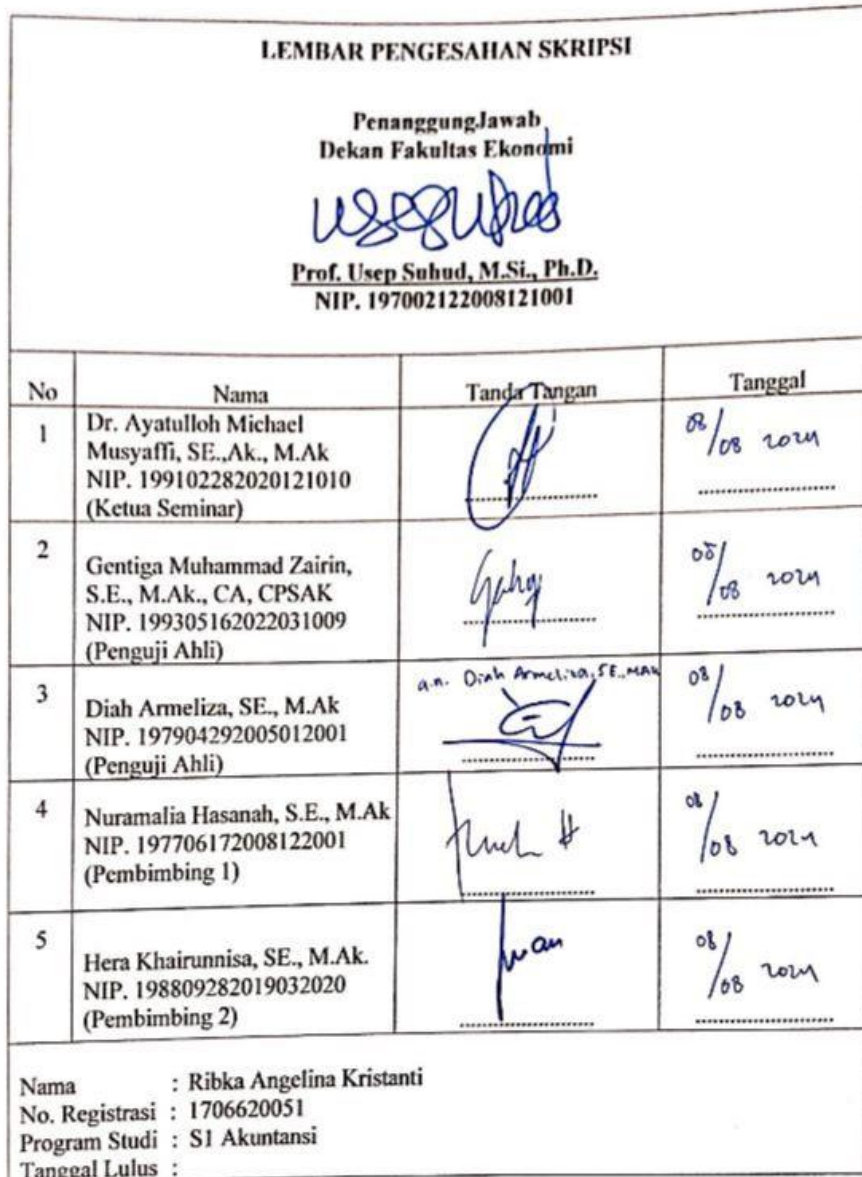 LEMBAR PENGESAHAN SKRIPSI
PenanggungJawab
Dekan Fakultas Ekonomi
Prof. Usep Suhud, M.Si., Ph.D.
NIP. 197002122008121001
No Nama Tanda Tangan Tanggal
1 Dr. Ayatulloh Michael
Musyaffi, SE.,Ak., M.Ak
NIP. 199102282020121010
(Ketua Seminar)
08/08 2024
2 Gentiga Muhammad Zairin,
S.E., M.Ak., CA, CPSAK
NIP. 199305162022031009
(Penguji Ahli)
08/08 2024
3 Diah Armeliza, SE., M.Ak
NIP. 197904292005012001
(Penguji Ahli)
a.n. Diah Armeliza, SE., MAk
08/08 2024
4 Nuramalia Hasanah, S.E., M.Ak
NIP. 197706172008122001
(Pembimbing 1)
08/08 2024
5 Hera Khairunnisa, SE., M.Ak.
NIP. 198809282019032020
(Pembimbing 2)
08/08 2024
Nama : Ribka Angelina Kristanti
No. Registrasi : 1706620051
Program Studi : S1 Akuntansi
Tanggal Lulus :